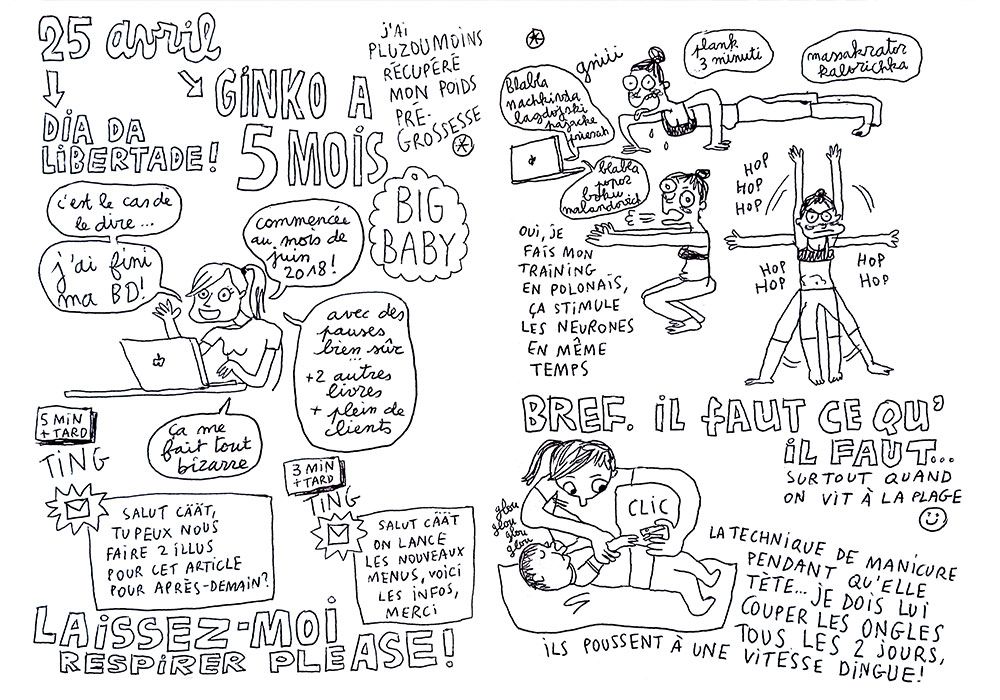 25 avril
DIA DA
LIBERTADE!
GINKO A
5 MOIS
J'AI
PLUZOUMOINS
RÉCUPÉRÉ
MON POIDS
PRÉ-
GROSSESSE
BIG
BABY
c'est le cas de
le dire...
j'ai fini
ma BD!
commencée
au mois de
juin
2018!
avec des
pauses
bien sûr
...
+2 autres
livres
+ plein de
clients
ça me
fait tout
bizarre
5 MIN
+ TARD
TING
SALUT CÄÄT,
TU PEUX NOUS
FAIRE 2 ILLUS
POUR CET ARTICLE
POUR APRÈS-DEMAIN?
3 MIN
+ TARD
TING
SALUT CÄÄT
ON LANCE
LES NOUVEAUX
MENUS, VOICI
LES INFOS,
MERCI
LAISSEZ-MOI
RESPIRER PLEASE!
gniii
plank
3 minuti
massakrator
kalorichka
Blabla
nachkinda
lagdojski
blabla
popor
boku
OUI, JE
FAIS MON
TRAINING
EN POLONAIS,
ÇA STIMULE
LES NEURONES
EN MÊME
TEMPS
HOP
HOP
HOP
HOP
HOP
HOP
HOP
BREF. IL FAUT CE QU'
IL FAUT...
SURTOUT QUAND
ON VIT À LA PLAGE
glou
glou
glou
glou
CLIC
LA TECHNIQUE DE MANICURE
PENDANT QU'ELLE
TÈTE... JE DOIS LUI
COUPER LES ONGLES
TOUS LES 2 JOURS,
ILS POUSSENT À UNE VITESSE DINGUE!